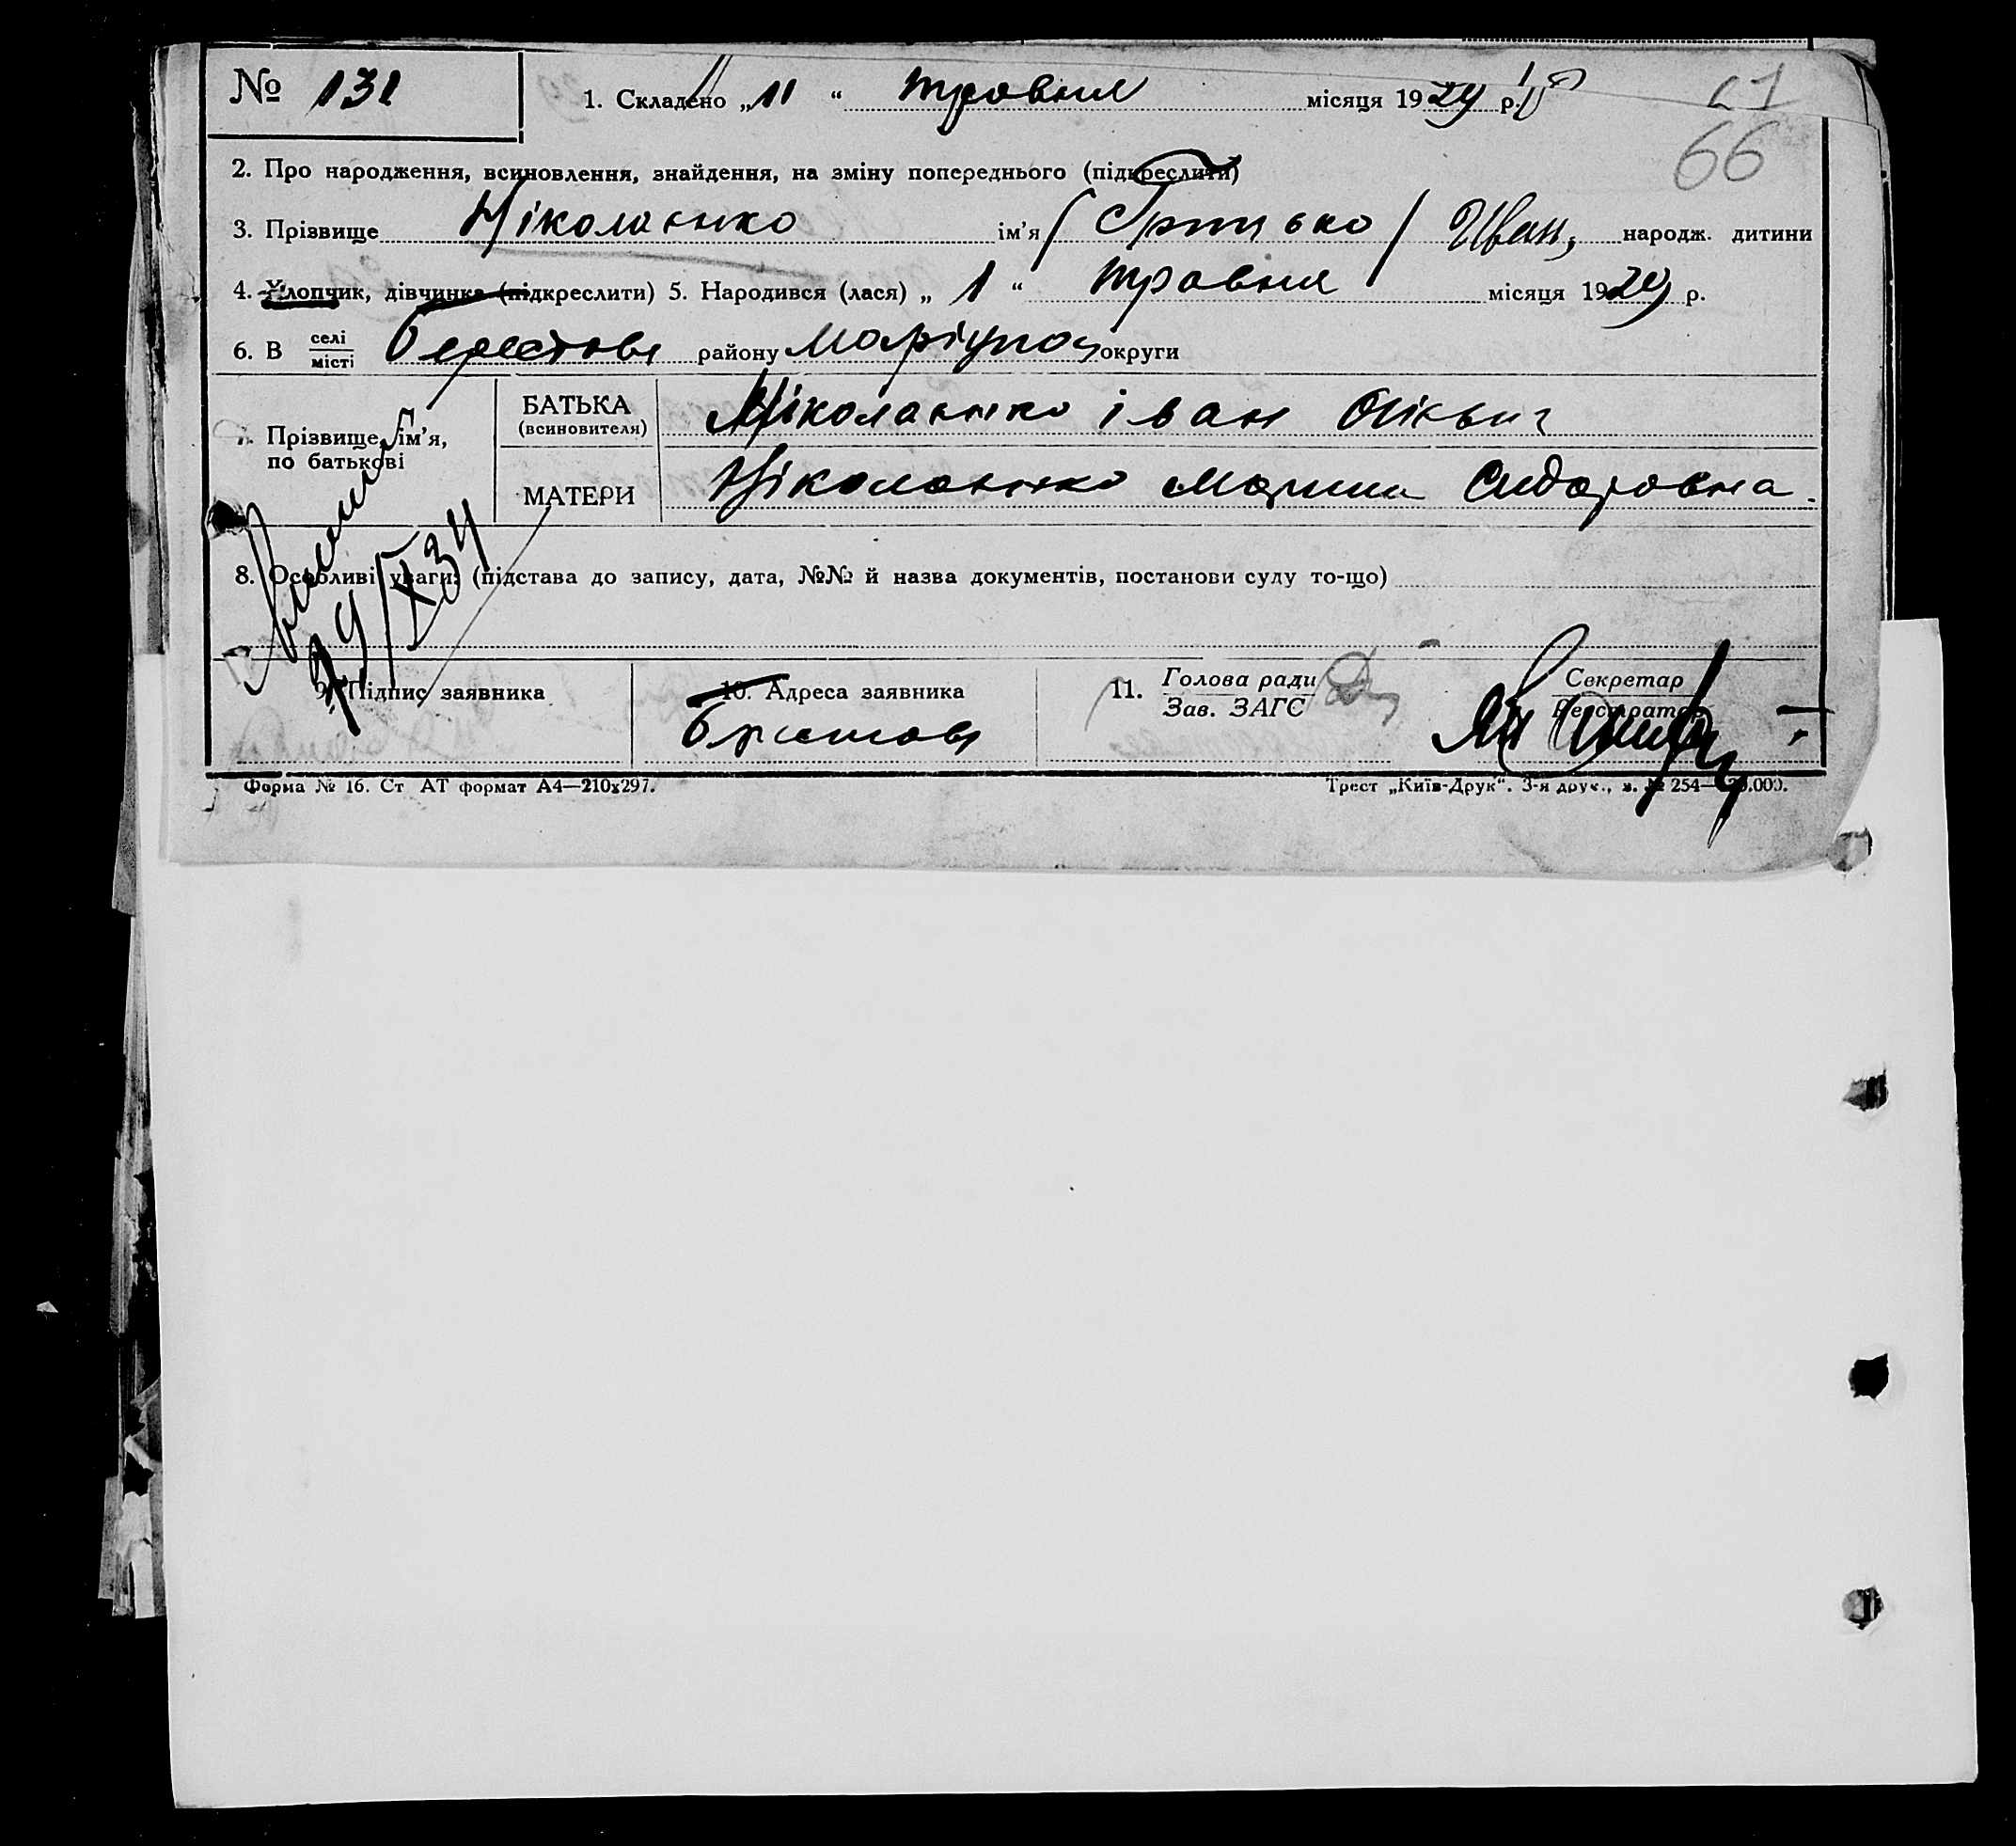 № 131
1. Складено „11“ травня місяця 1929 р.
66
2. Про народження, всиновлення, знайдення, на зміну попереднього (підкреслити)
3. Прізвище Ніколаенко ім'я (Грицько) Иван, народж. дитини
4. Хлопчик, дівчинка (підкреслити) 5. Народився (лася) „1“ травня місяця 1929 р.
6. В селі місті Берестове району Маріупол округи
7. Прізвище, ім'я, по батькові
БАТЬКА (всиновителя) Ніколаенко Іван
МАТЕРИ Ніколаенко Марина Сидоровна.
8. Особливі уваги: (підстава до запису, дата, №№ й назва документів, постанови суду то-що)
29/X 34
9. Підпис заявника
10. Адреса заявника
11. Голова ради Зав. ЗАГС
Секретар Реєстратор
Форма № 16. Ст АТ формат А4—210х297.
Трест „Київ-Друк“. 3-я друк., з. № 254—20.000.